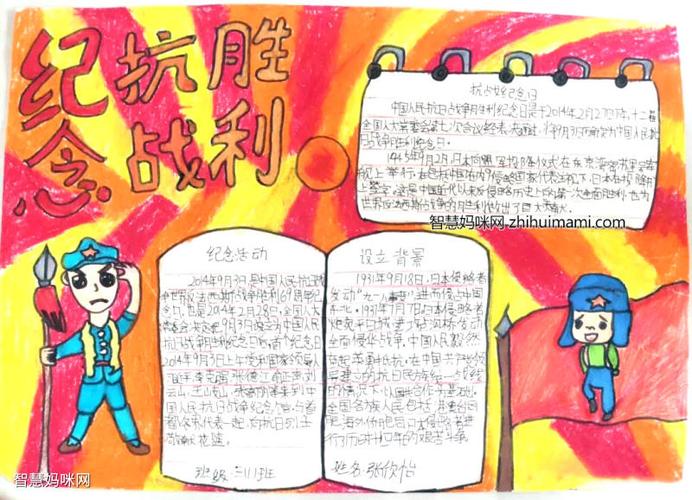 纪念
抗战
胜利
抗战纪念日
中国人民抗日战争胜利纪念日是于2014年2月27日下午,十二届
全国人大常委会第七次会议经表决通过,将9月3日确定为中国人民抗
日战争胜利纪念日。
1945年9月2日,日本向盟军投降仪式在东京湾密苏里号军
舰上举行。在包括中国在内的9个受降国代表注视下,日本在投降书
上签字。这是中国近代以来反侵略历史上的第一次全面胜利,也为
世界反法西斯战争的胜利作出了巨大贡献。
智慧妈咪网 zhihuimami.com
纪念活动
2014年9月3日是中国人民抗日战
争暨世界反法西斯战争胜利69周年纪
念日。也是2014年2月28日,全国人大
常委会决定把9月3日设立为中国人民
抗日战争胜利纪念日后,首个纪念日
2014年9月3日上午党和国家领导人
云山、王岐山、张高丽等来到中
国人民抗日战争纪念馆,与首
都各界代表一起,向抗日烈士
敬献花篮。
班级:三(1)班
设立背景
1931年9月18日,日本侵略者
发动"九一八事变",进而侵占中国
东北。1937年7月7日,日本侵略者
全面侵华战争,中国人民毅然
奋起,英勇抵抗。在中国共产党领
导建立的抗日民族统一战线
的情况下,以国共合作为基础,
全国各族人民包括
行了历时十四年的艰苦斗争
姓名:张欣怡
智慧妈咪网